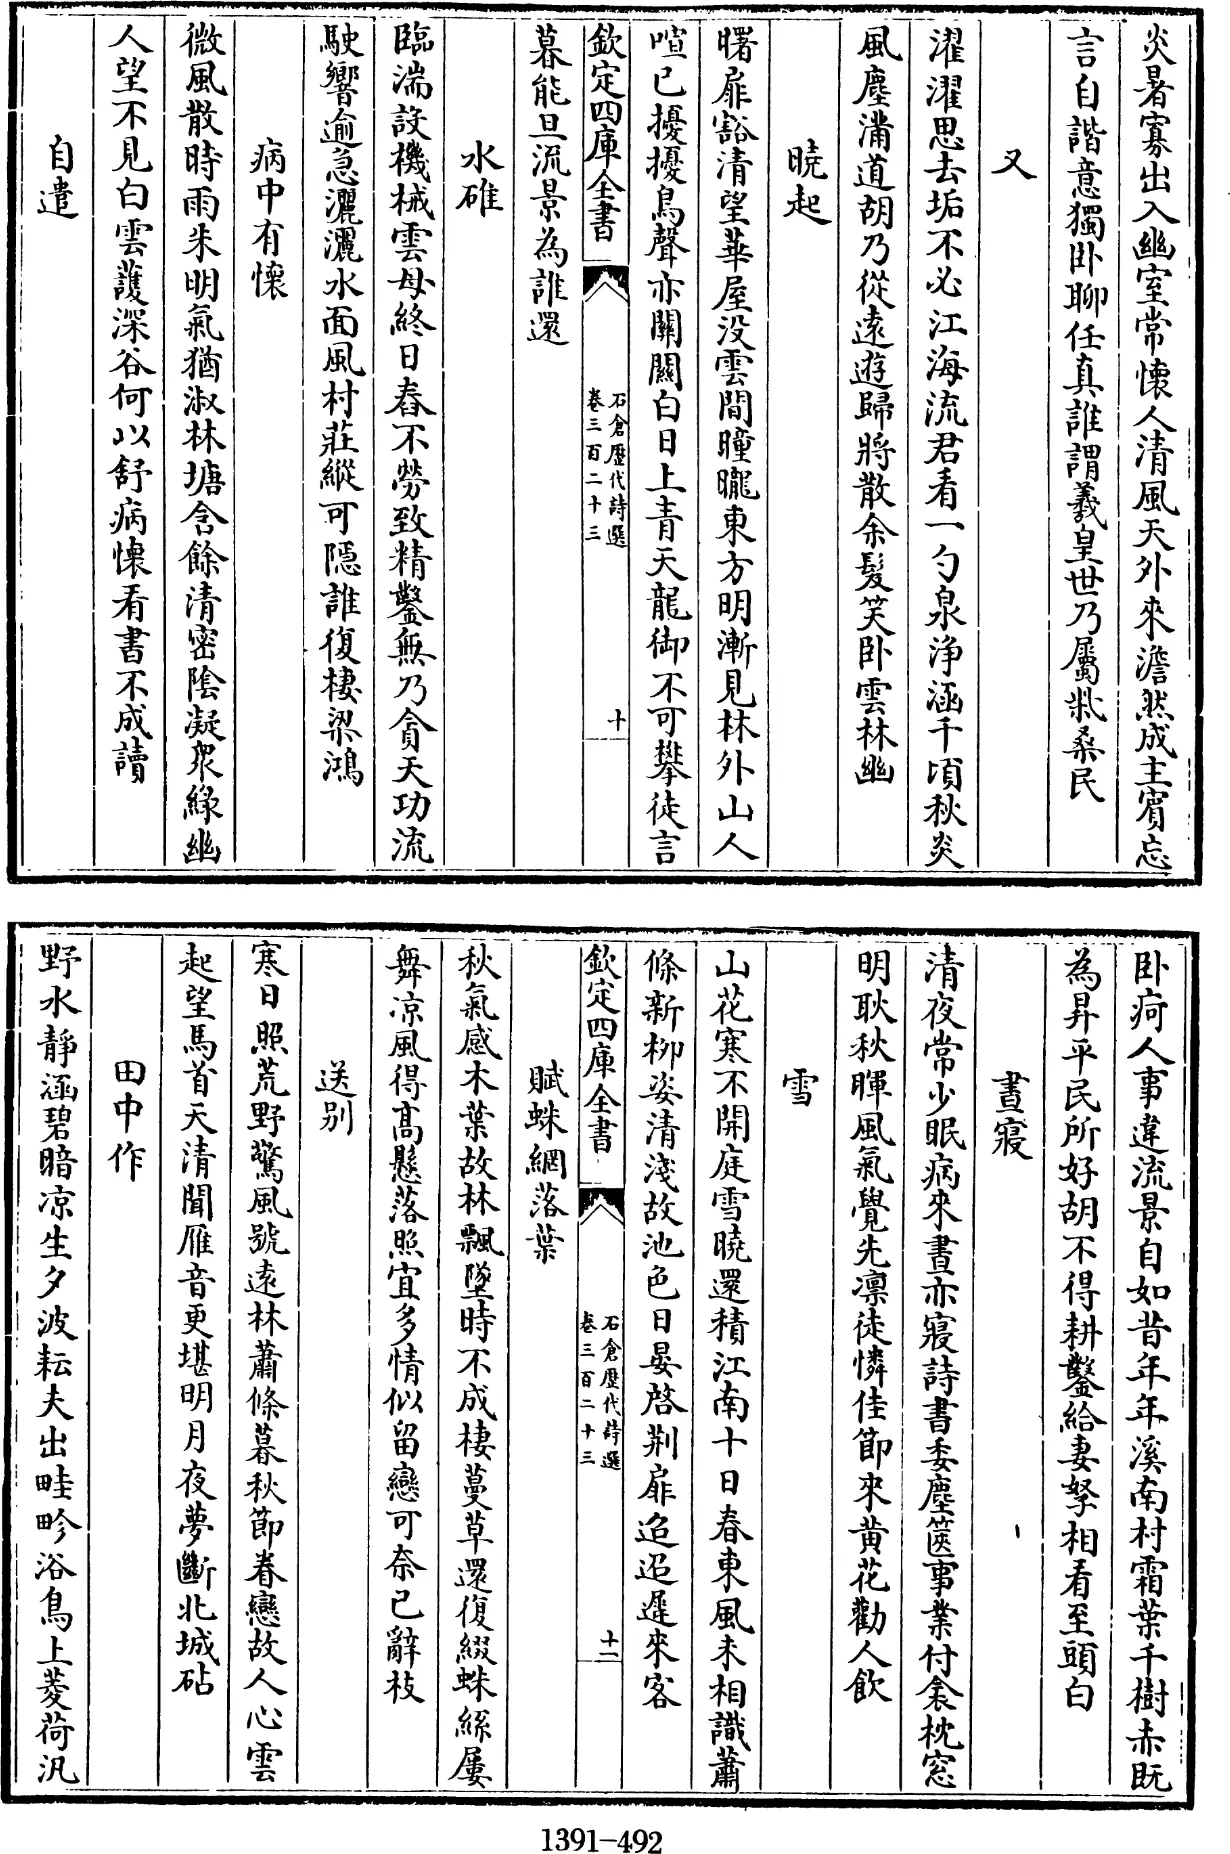 炎暑寡出入幽室常懐人清風天外來澹然成主賓忘
言自諧意獨卧聊任真誰謂羲皇世乃屬牀桑民
又
濯濯思去垢不必江海流君看一勺泉浄涵千頃秋炎
風塵滿道胡乃從逺遊歸將散余髪笑卧雲林幽
曉起
曙扉豁清望華屋没雲間曈曨東方明漸見林外山人
喧已擾擾鳥聲亦關關白日上青天龍御不可攀徒言
欽定四庫全書
石倉歷代詩選
卷三百二十三
十
暮能旦流景為誰還
水碓
臨湍設機械雲母終日舂不勞致精鑿無乃貪天功流
駛響逾急灑灑水面風村莊縱可隠誰復棲梁鴻
病中有懷
微風散時雨朱明氣猶淑林塘含餘清密陰凝衆緑幽
人望不見白雲護深谷何以舒病懷看書不成讀
自遣
卧疴人事違流景自如昔年年溪南村霜葉千樹赤既
為昇平民所好胡不得耕鑿給妻孥相看至頭白
晝寢
清夜常少眠病來晝亦寢詩書委塵篋事業付衾枕窓
明耿秋暉風氣覺先凛徒憐佳節來黄花勸人飲
雪
山花寒不開庭雪曉還積江南十日春東風未相識蕭
條新栁姿清淺故池色日晏啓荆扉迨迨遲來客
欽定四庫全書
石倉歷代詩選
卷三百二十三
十一
賦蛛網落葉
秋氣感木葉故林飄墜時不成棲蔓草還復綴蛛絲屢
舞凉風得髙懸落照宜多情似留戀可奈已辭枝
送别
寒日照荒野驚風號逺林蕭條暮秋節眷戀故人心雲
起望馬首天清聞雁音更堪明月夜夢斷北城砧
田中作
野水靜涵碧暗凉生夕波耘夫出畦畛浴鳥上菱荷汎
1391-492